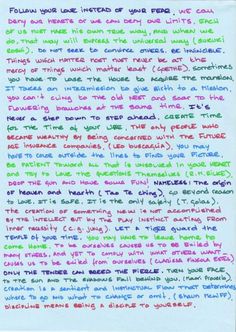 FOLLOW YOUR LOVE INSTEAD OF YOUR FEAR. WE CAN
DENY OUR HEARTS OR WE CAN DENY OUR LIMITS. EACH
OF US MUST MAKE HIS OWN TRUE WAY, AND WHEN WE
DO, THAT WAY WILL EXPRESS THE UNIVERSAL WAY (SUZUKI
ROSHI). DO NOT SEEK TO CONVINCE OTHERS. BE INVINCIBLE.
THINGS WHICH MATTER MOST MUST NEVER BE AT THE
MERCY OF THINGS WHICH MATTER LEAST (GOETHE). SOMETIMES
YOU HAVE TO LOSE THE HOUSE TO ACQUIRE THE MANSION.
IT TAKES AN INTERMISSION TO GIVE BIRTH TO A MISSION.
YOU CAN'T CLING TO THE OLD NEST AND SOAR TO THE
FLOWERING BRANCHES AT THE SAME TIME. IT'S
NEVER A STEP DOWN TO STEP AHEAD. CREATE TIME
OR THE TIME OF YOUR LIFE. THE ONLY PEOPLE WHO
BECOME WEALTHY BY BEING CONCERNED WITH THE FUTURE
ARE INSURANCE COMPANIES. (LEO BUSCAGLIA). YOU MAY
HAVE TO COME OUTSIDE THE LINES TO FIND YOUR PICTURE.
BE PATIENT TOWARD ALL THAT IS UNSOLVED IN YOUR HEART
AND TRY TO LOVE THE QUESTIONS THEMSELVES (R.M. RILKE).
DROP THE GUN AND HAVE SOME FUN! NAMELESS: THE ORIGIN
OF HEAVEN AND EARTH (TAO TE CHING). GO BEYOND REASON
TO LOVE. IT IS SAFE. IT IS THE ONLY SAFETY (T. GOLAS).
THE CREATION OF SOMETHING NEW IS NOT ACCOMPLISHED
BY THE INTELLECT BUT BY THE PLAY INSTINCT ACTING FROM
INNER NECESSITY (C.G. JUNG). LET A TIGER GUARD THE
TEMPLE OF YOUR TIME. YOU MAY NEED TO LEAVE HOME TO
COME HOME. TO BE OURSELVES CAUSES US TO BE EXILED BY
MANY OTHERS, AND YET TO COMPLY WITH WHAT OTHERS WANT
CAUSES US TO BE EXILED FROM OURSELVES (CLARISSA PINKOLA ESTES).
ONLY THE TENDER CAN DEFEND THE FIERCE. TURN YOUR FACE
TO THE SUN AND THE SHADOWS FALL BEHIND YOU. (MAORI PROVERB).
CREATION IS A SENTIENT AND INSTINCTUAL FLOW THAT DETERMINES
WHERE TO GO AND WHAT TO CHANGE OR OMIT. (SHAUN MCNIFF)
DISCIPLINE MEANS BEING A DISCIPLE TO YOURSELF.